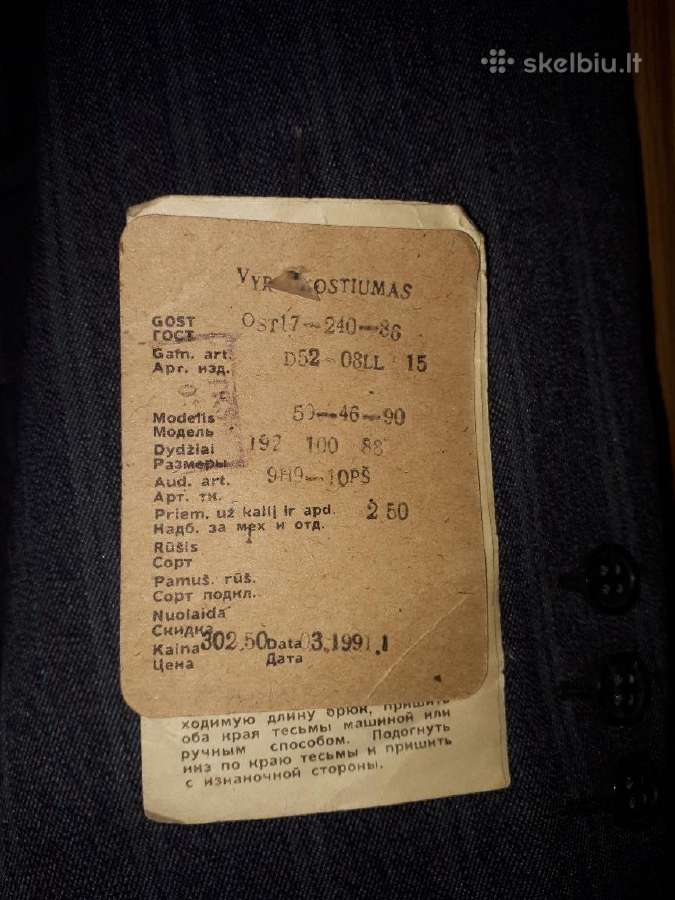 skelbiu.lt
VYR OSTIUMAS
GOST OST17-240-86
ГОСТ
Gam. art. D52-08LL 15
Арт. изд.
Modelis 50-46-90
Модель
Dydžiai 192 100 88
Размеры
Aud. art. 9H9-10PŠ
Арт. тк.
Priem. už kailį ir apd. 2 50
Надб. за мех и отд.
Rūšis
Сорт
Pamuš. rūš.
Сорт подкл.
Nuolaida
Скидка
Kaina 302.50 Data 03.1991.
Цена Дата
ходимую длину брюк, пришить
оба края тесьмы машиной или
ручным способом. Подогнуть
низ по краю тесьмы и пришить
с изнаночной стороны.